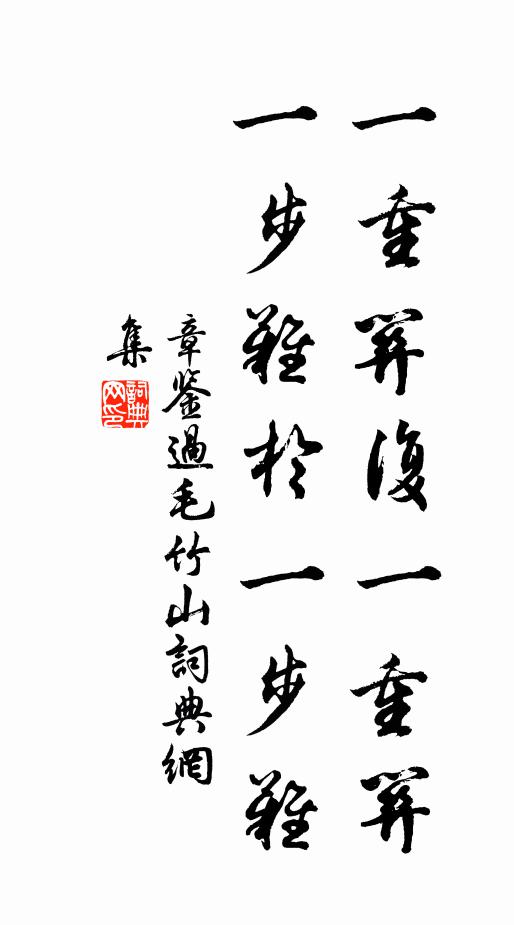 一重關復一重關
一步難於一步難
章鑒過毛竹山詞典網
集
詞典網印